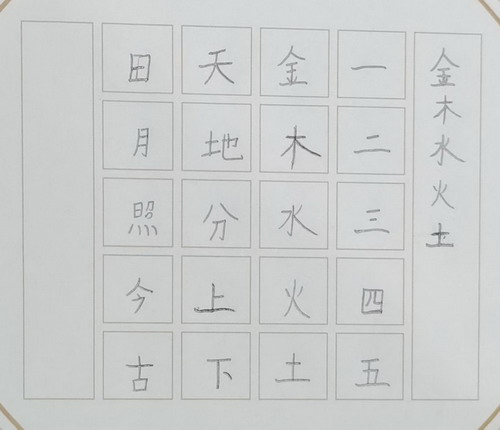 金木水火土
一二三四五
金木水火土
天地分上下
田月照今古